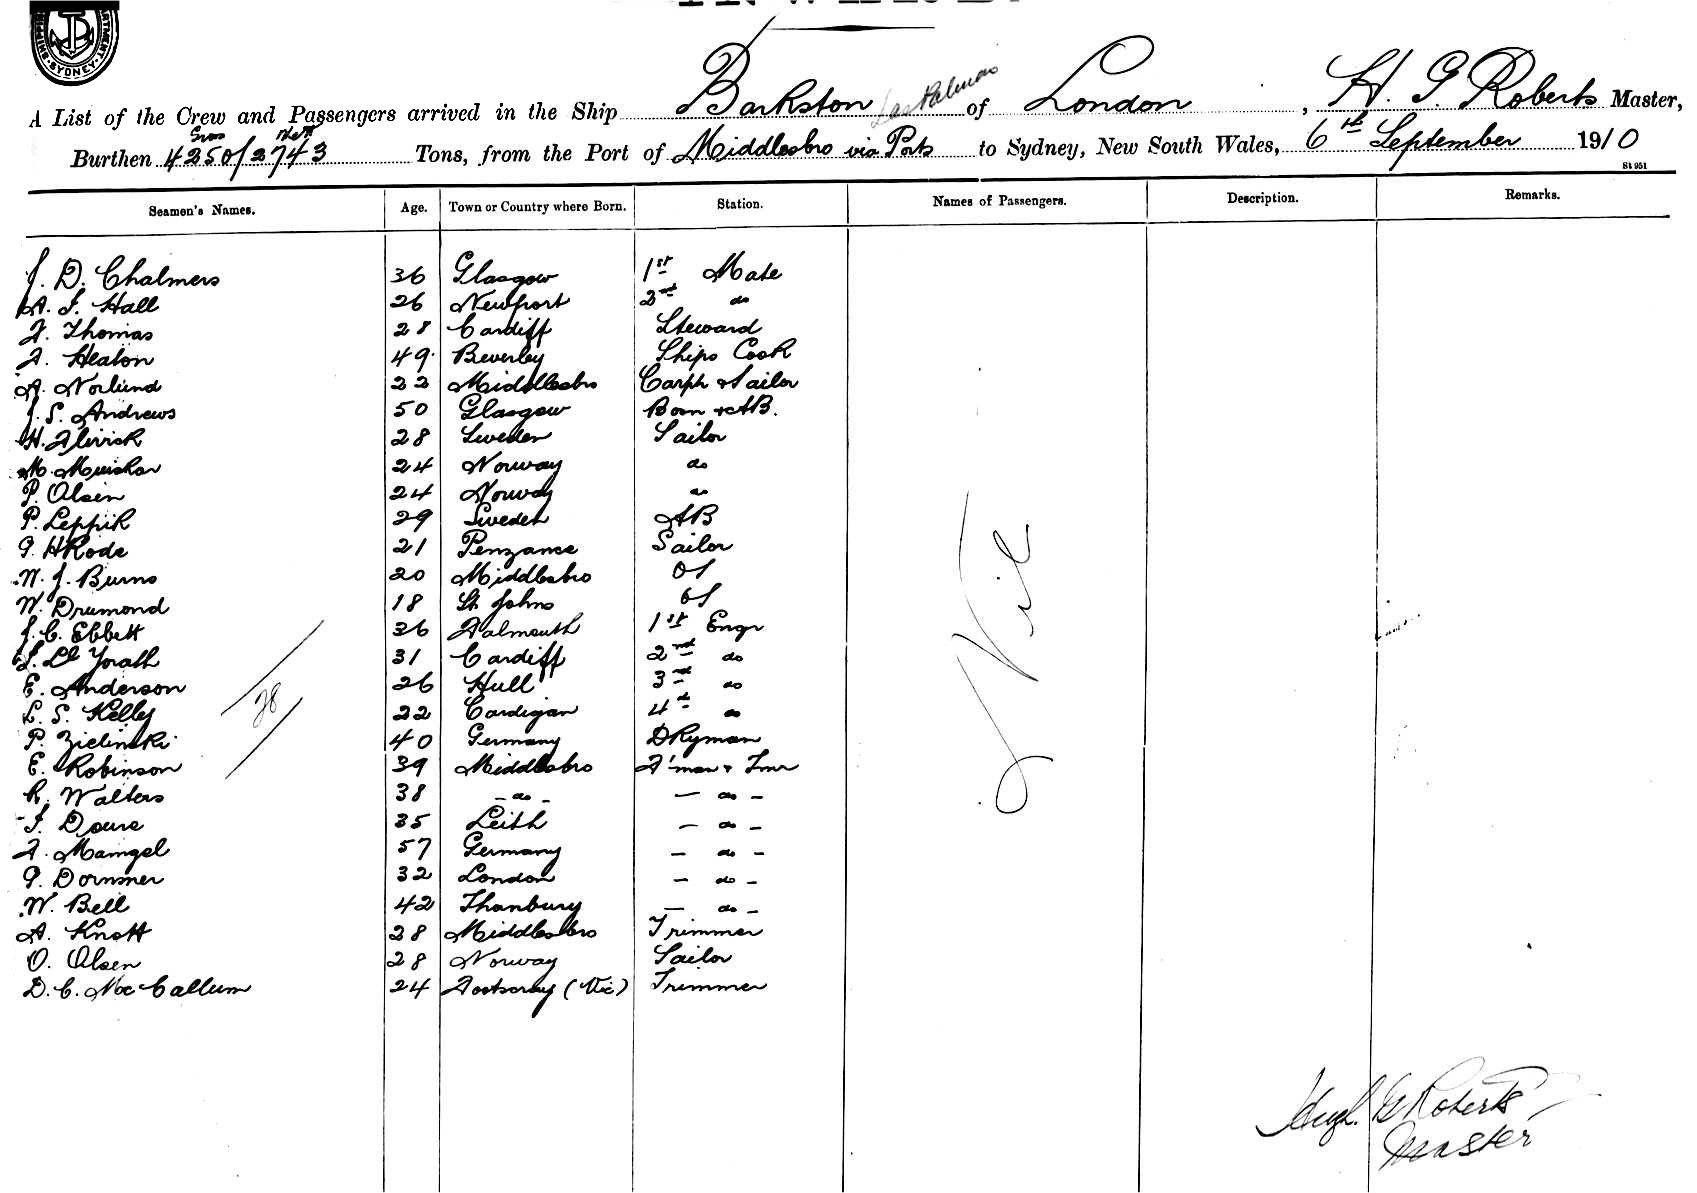 SYDNEY
A List of the Crew and Passengers arrived in the Ship Barkston Las Palmas of London, H. G. Roberts Master,
Burthen 4250/2743 Gross Nett Tons, from the Port of Middlesbro via Ports to Sydney, New South Wales, 6th September 1910
St 951
Seamen's Names. Age. Town or Country where Born. Station. Names of Passengers. Description. Remarks.
J. D. Chalmers 36 Glasgow 1st Mate
A. J. Hall 26 Newport 2nd do
F. Thomas 28 Cardiff Steward
F. Heaton 49 Beverley Ships Cook
A. Norlund 22 Middlesbro Carptr & Sailor
J. S. Andrews 50 Glasgow Bosn & AB.
H. 28 Sweden Sailor
M. 24 Norway do
P. Olsen 24 Norway do
P. Leppik 29 Sweden AB
G. H Rode 21 Penzance Sailor
W. J. Burns 20 Middlesbro OS
W. Drumond 18 St Johns OS
J. C. Ebbett 36 Falmouth 1st Engr
Yorath 31 Cardiff 2nd do
E. Anderson 26 Hull 3rd do
L. S. Kelly 22 Cardigan 4th do
P. Zielinski 40 Germany DKyman
E. Robinson 39 Middlesbro F'man & Tmr
R. Walters 38 - do - - do -
35 Leith - do -
F. Mamgel 57 Germany - do -
G. Dornmer 32 London - do -
W. Bell 42 Thanbury - do -
A. Knott 28 Middlesbro Trimmer
O. Olsen 28 Norway Sailor
D. C. McCallum 24 Footscray (Vic) Trimmer
28
Nil
Hugh. G Roberts
Master